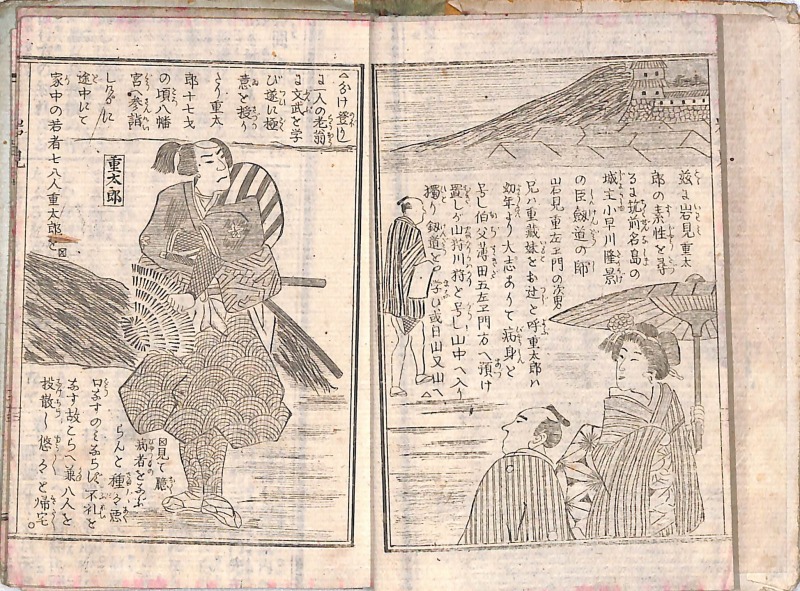 茲に岩見重太
郎の素性を尋
るに筑前名島の
城主小早川隆景
の臣劔道の師
岩見重左エ門の次男
兄ハ重蔵妹をお辻と呼重太郎ハ
幼年より大志ありて病身と
号し伯父薄田五左エ門方へ預け
置しが山狩川狩と号し山中へ入り
獨り劔道を学しに或日山又山へ
△わけ登りし
に一人の老翁
に文武を学
び遂に極
意を授り
たり重太
郎十七才
の頃八幡
宮へ参詣
しけるに
途中にて
家中の若者七八人重太郎を
重太郎
見て臆
病者をあぶ
らんと種々悪
口なすのみならず不礼を
なす故こらへ兼八人を
投散し悠々と帰宅
岩見